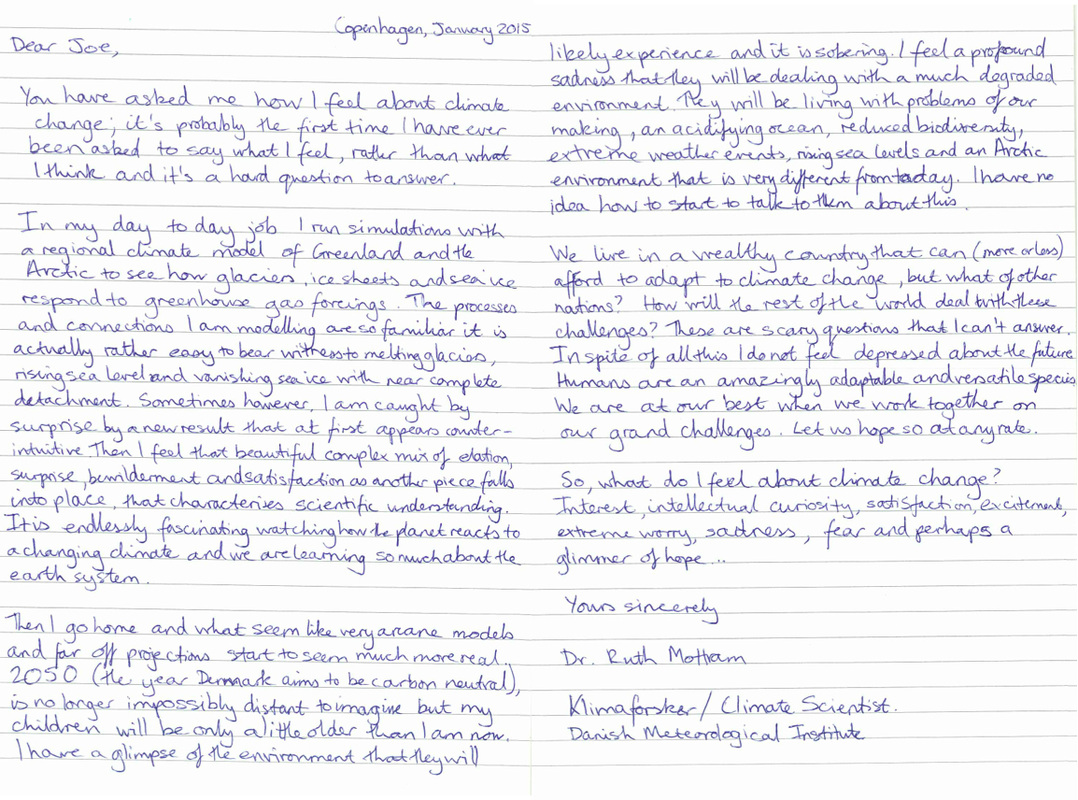 Copenhagen, January 2015
Dear Joe,
You have asked me how I feel about climate
change; it's probably the first time I have ever
been asked to say what I feel, rather than what
I think and it's a hard question to answer.
In my day to day job I run simulations with
a regional climate model of Greenland and the
Arctic to see how glaciers, ice sheets and sea ice
respond to greenhouse gas forcings. The processes
and connections I am modelling are so familiar it is
actually rather easy to bear witness to melting glaciers,
rising sea level and vanishing sea ice with near complete
detachment. Sometimes however, I am caught by
surprise by a new result that at first appears counter-
intuitive. Then I feel that beautiful complex mix of elation,
surprise, bewilderment and satisfaction as another piece falls
into place, that characterises scientific understanding.
It is endlessly fascinating watching how the planet reacts to
a changing climate and we are learning so much about the
earth system.
Then I go home and what seem like very arcane models
and far off projections start to seem much more real.
2050 (the year Denmark aims to be carbon neutral),
is no longer impossibly distant to imagine but my
children will be only a little older than I am now.
I have a glimpse of the environment that they will
likely experience and it is sobering. I feel a profound
sadness that they will be dealing with a much degraded
environment. They will be living with problems of our
making, an acidifying ocean, reduced biodiversity,
extreme weather events, rising sea levels and an Arctic
environment that is very different from today. I have no
idea how to start to talk to them about this.
We live in a wealthy country that can (more or less)
afford to adapt to climate change, but what of other
nations? How will the rest of the world deal with these
challenges? These are scary questions that I can't answer.
In spite of all this I do not feel depressed about the future
Humans are an amazingly adaptable and versatile species
We are at our best when we work together on
our grand challenges. Let us hope so at any rate.
So, what do I feel about climate change?
Interest, intellectual curiosity, satisfaction, excitement,
extreme worry, sadness, fear and perhaps a
glimmer of hope...
Yours sincerely
Dr. Ruth Mottram
Klimaforsker / Climate Scientist.
Danish Meteorological Institute